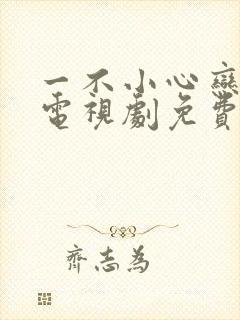 一不小心戀
電視劇免費
齊志為